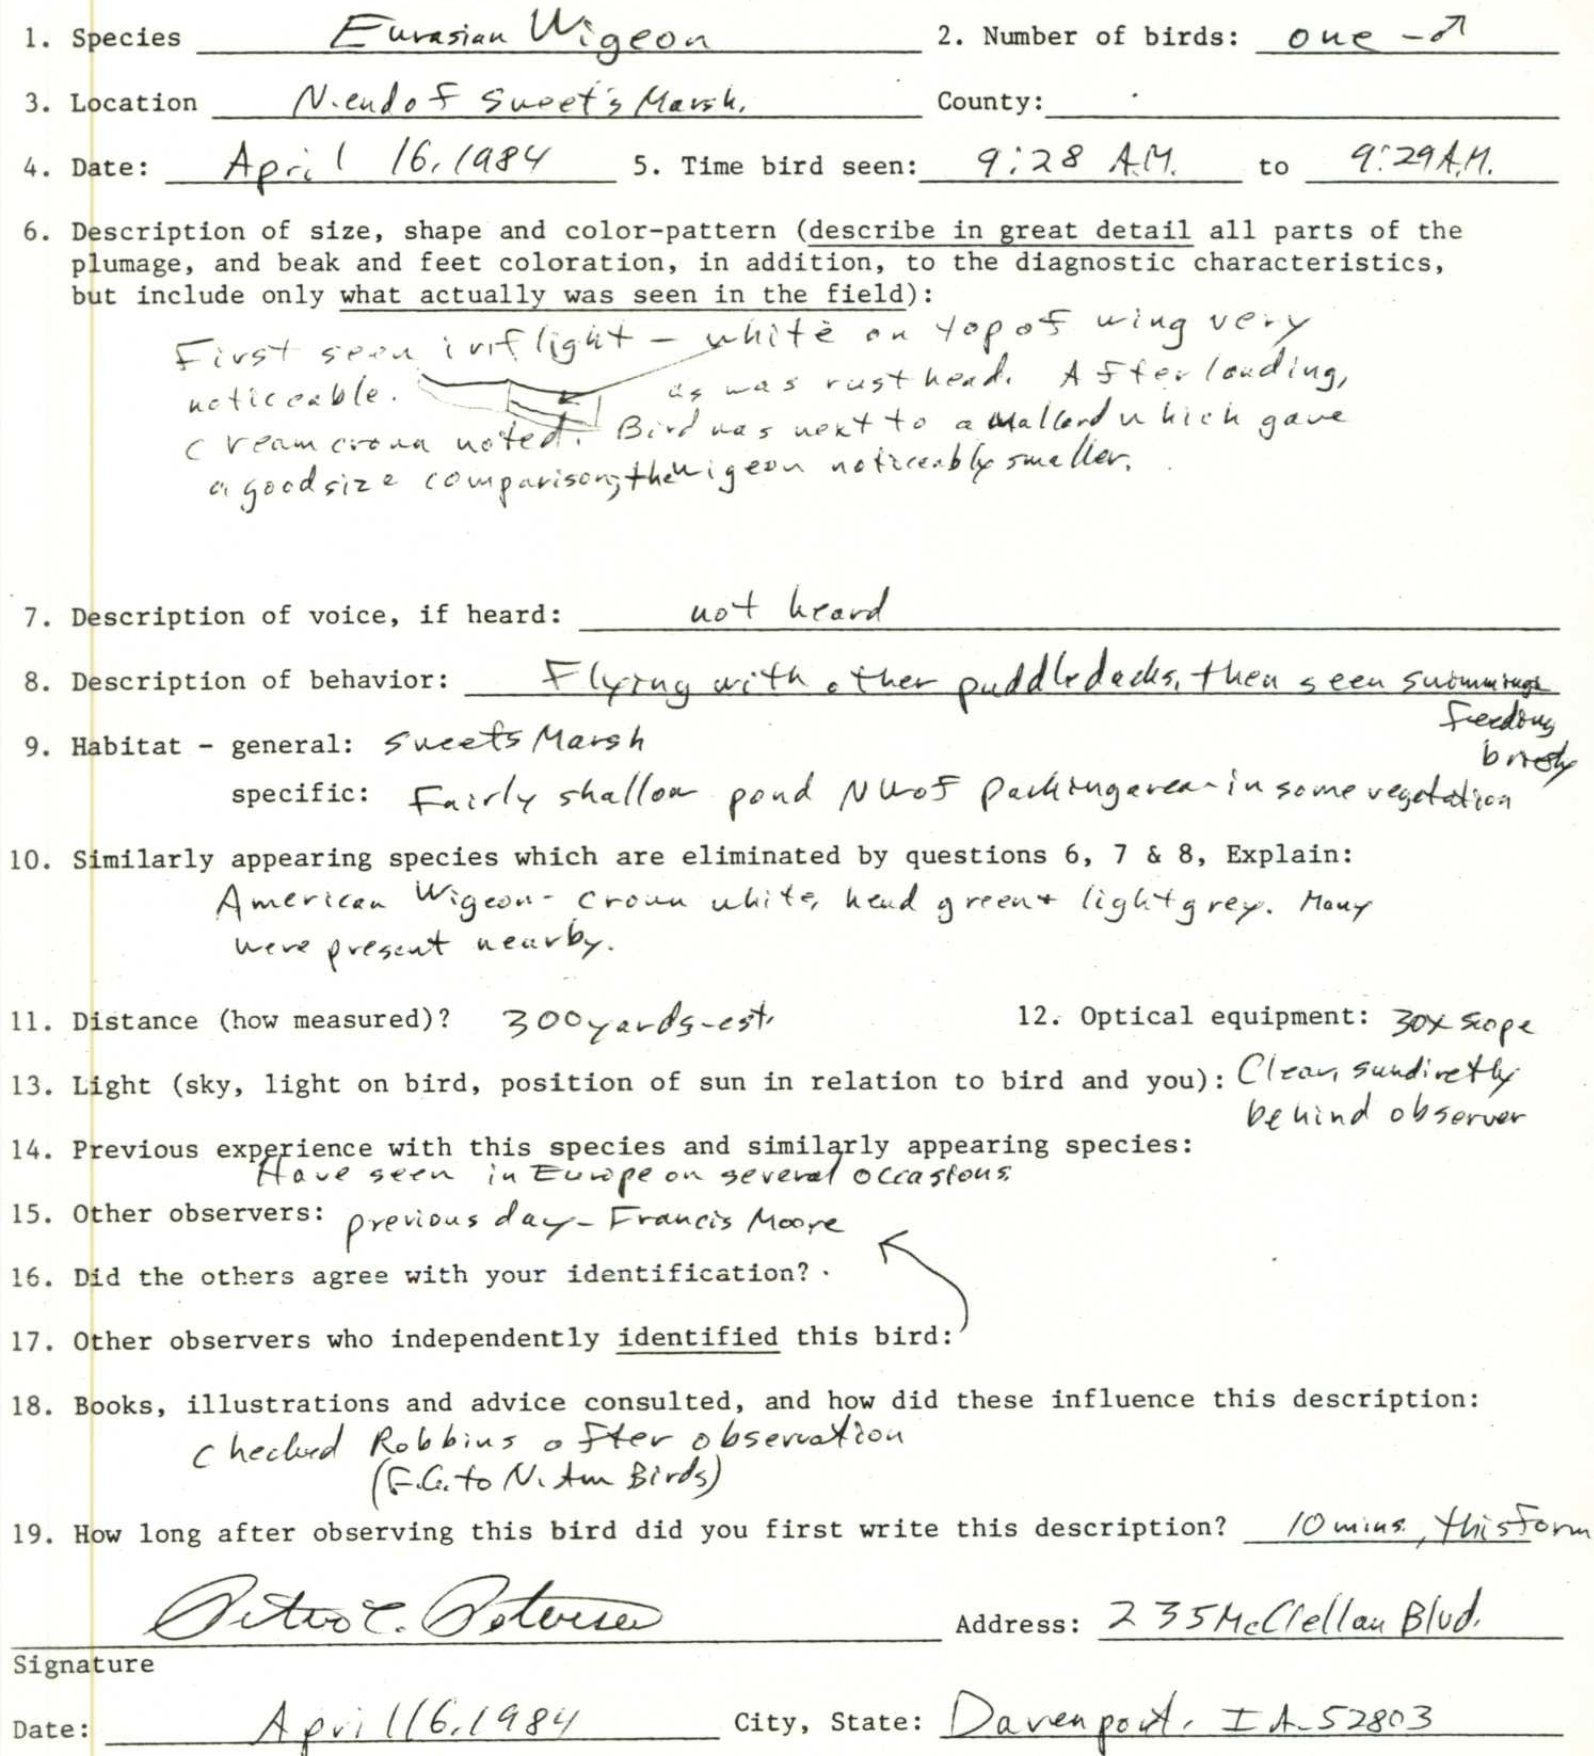 1. Species Eurasian Wigeon 2. Number of birds: one - ♂
3. Location N. end of Sweet's Marsh. County:
4. Date: April 16, 1984 5. Time bird seen: 9:28 A.M. to 9:29 A.M.
6. Description of size, shape and color-pattern (describe in great detail all parts of the
plumage, and beak and feet coloration, in addition, to the diagnostic characteristics,
but include only what actually was seen in the field):
First seen in flight - white on top of wing very
noticeable. as was rust head. After landing,
cream crown noted. Bird was next to a Mallard which gave
a good size comparison, the wigeon noticeably smaller.
7. Description of voice, if heard: not heard
8. Description of behavior: Flying with other puddle ducks, then seen swimming
feeding
briefly
9. Habitat - general: Sweets Marsh
specific: Fairly shallow pond NW of parking area - in some vegetation
10. Similarly appearing species which are eliminated by questions 6, 7 & 8, Explain:
American Wigeon - crown white, head green + light grey. Many
were present nearby.
11. Distance (how measured)? 300 yards - est. 12. Optical equipment: 30x scope
13. Light (sky, light on bird, position of sun in relation to bird and you): Clear, sun diretly
behind observer
14. Previous experience with this species and similarly appearing species:
Have seen in Europe on several occasions.
15. Other observers: previous day - Francis Moore
16. Did the others agree with your identification?
17. Other observers who independently identified this bird:
18. Books, illustrations and advice consulted, and how did these influence this description:
Checked Robbins after observation
(F.G. to N. Am Birds)
19. How long after observing this bird did you first write this description? 10 mins., this form
Peter C. Petersen Address: 235 McClellan Blvd.
Signature
Date: April 16, 1984 City, State: Davenport, IA - 52803